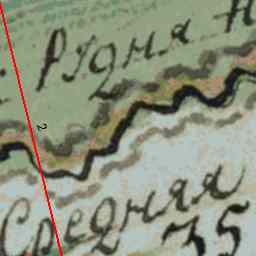 Рудня Н
2
Средняя
35